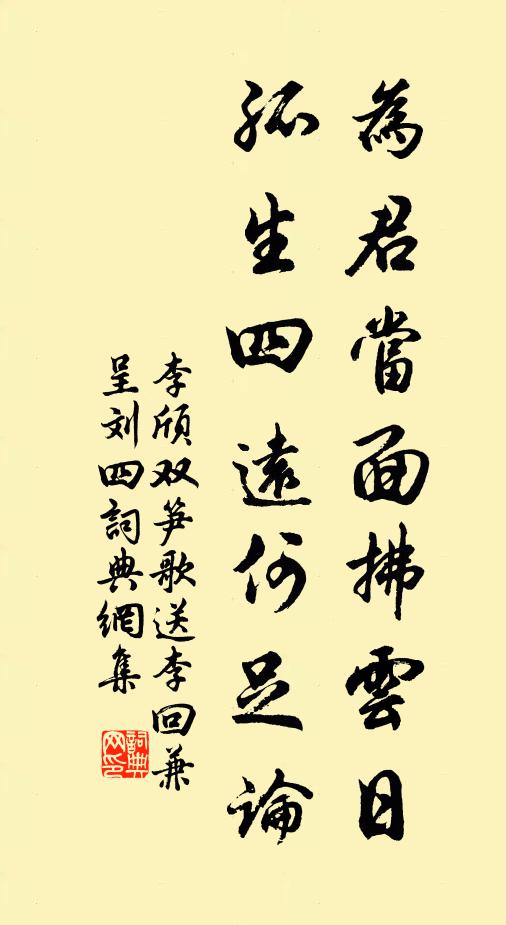 為君當面拂雲日
孤生四遠何足論
李頎双笋歌送李回兼
呈刘四詞典網集
詞典
网印